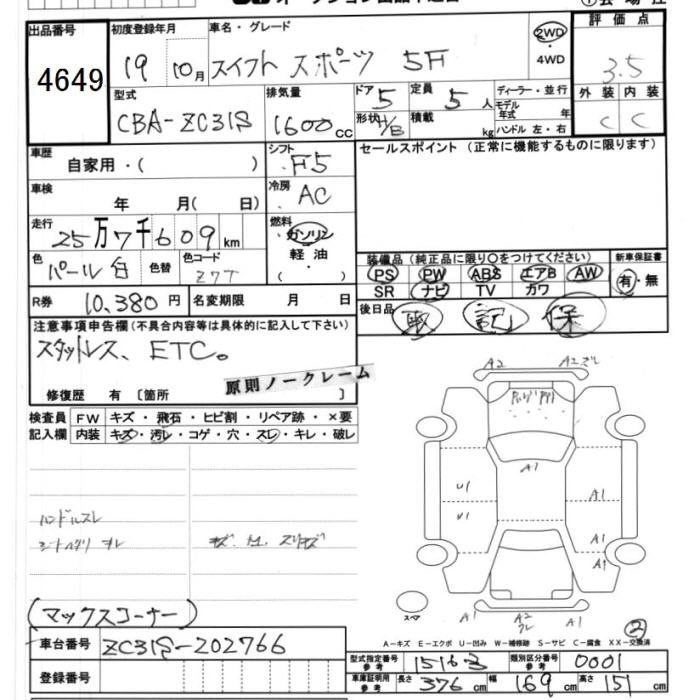 出品番号
4649
初度登録年月
19 10月
車名・グレード
スイフト スポーツ 5F
2WD
・
4WD
評価点
3.5
外装 内装
C C
型式
CBA-ZC31S
排気量
1600cc
ドア 5
形状 H/B
定員 5人
積載 kg
ディーラー・並行
モデル年式 年
ハンドル 左・右
車歴
自家用・( )
シフト
F5
セールスポイント (正常に機能するものに限ります)
車検
年 月( 日)
冷房
AC
走行
25万7千609km
燃料
ガソリン
軽油
・
( )
色
パール白
色替
色コード
Z7T
装備品 (純正品に限り○をつけてください)
PS PW ABS エアB AW
SR ナビ TV カワ
新車保証書
有・無
R券 10,380円
名変期限 月 日
後日品 取 記 保
注意事項申告欄 (不具合内容等は具体的に記入して下さい)
スタットレス、ETC。
原則ノークレーム
修復歴 有 〔箇所 〕
検査員記入欄
FW キズ・飛石・ヒビ割・リペア跡・×要
内装 キズ・汚レ・コゲ・穴・スレ・キレ・破レ
ハンドルスレ
A2 A2
A1
U1
U1
A1
A1
A1
A1 A2 A1
スペア
(マックスコーナー)
2
A-キズ E-エクボ U-凹み W-補修跡 S-サビ C-腐食 XX-交換済
車台番号 ZC31S-202766
登録番号
型式指定番号 参考 15163
類別区分番号 参考 0001
車庫証明用 参考 長さ 376cm 幅 169cm 高さ 151cm